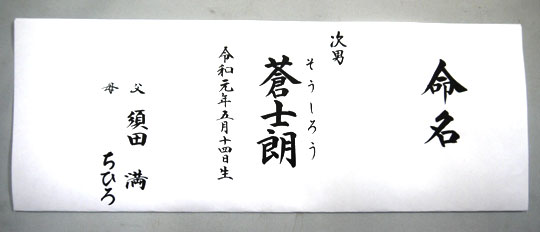 命名
次男
そうしろう
蒼士朗
令和元年五月十四日生
父 須田 満
母 ちひろ